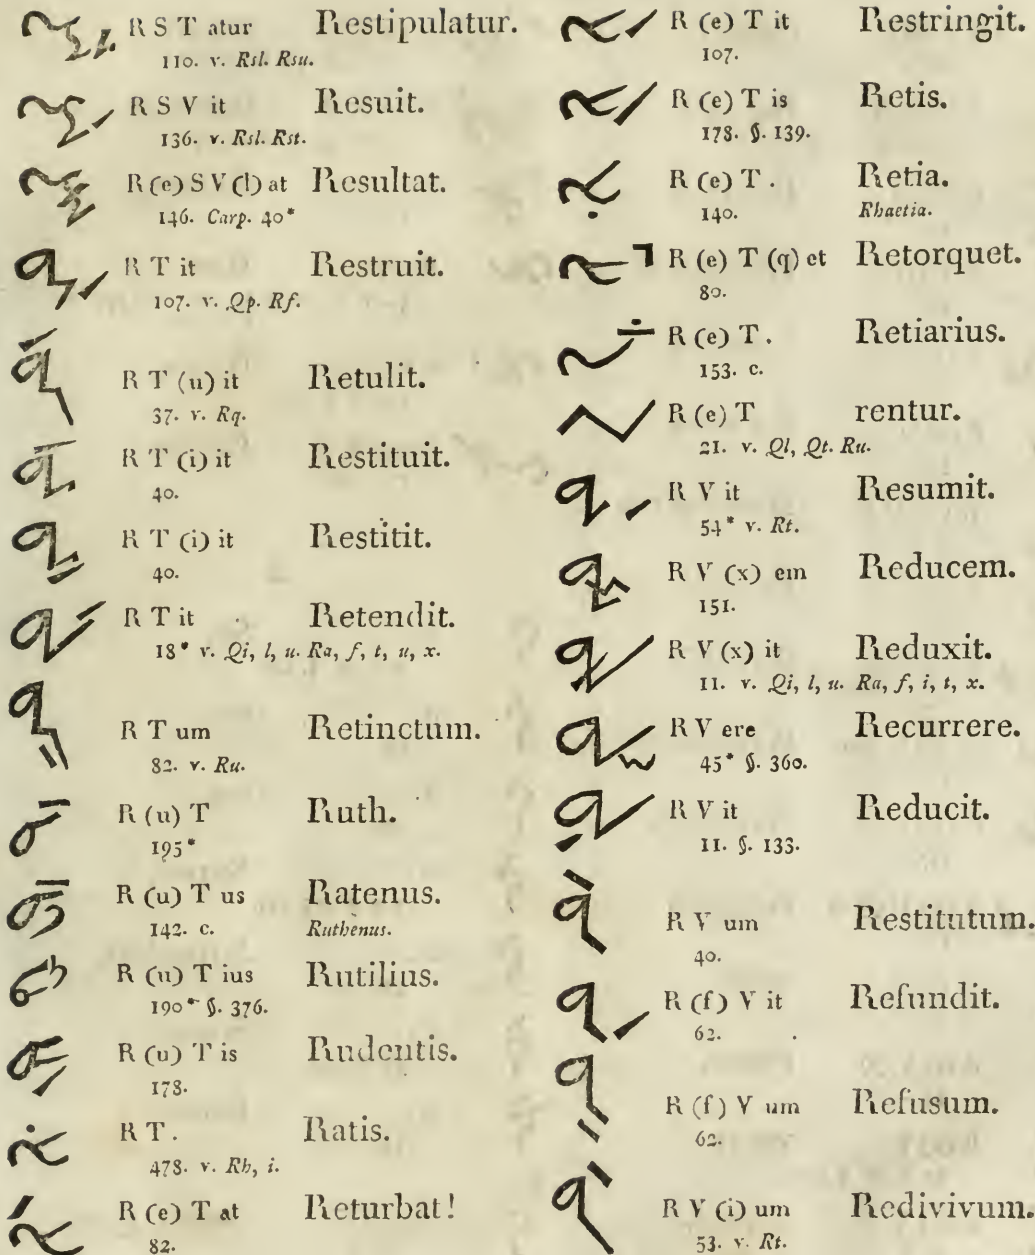 R S T atur Restipulatur.
110. v. Rsl. Rsu.
R S V it Resuit.
136. v. Rsl. Rst.
R (e) S V (l) at Resultat.
146. Carp. 40*
R T it Restruit.
107. v. Qp. Rf.
R T (u) it Retulit.
37. v. Rq.
R T (i) it Restituit.
40.
R T (i) it Restitit.
40.
R T it Retendit.
18* v. Qi, l, u. Ra, f, t, u, x.
R T um Retinctum.
82. v. Ru.
R (u) T Ruth.
195*
R (u) T us Ratenus.
142. c. Ruthenus.
R (u) T ius Rutilius.
190* §. 376.
R (u) T is Rudentis.
178.
R T . Ratis.
478. v. Rh, i.
R (e) T at Returbat!
82.
R (e) T it Restringit.
107.
R (e) T is Retis.
178. §. 139.
R (e) T . Retia.
140. Rhaetia.
R (e) T (q) et Retorquet.
80.
R (e) T . Retiarius.
153. c.
R (e) T rentur.
21. v. Ql, Qt. Ru.
R V it Resumit.
54* v. Rt.
R V (x) em Reducem.
151.
R V (x) it Reduxit.
11. v. Qi, l, u. Ra, f, i, t, x.
R V ere Recurrere.
45* §. 360.
R V it Reducit.
11. §. 133.
R V um Restitutum.
40.
R (f) V it Refundit.
62.
R (f) V um Refusum.
62.
R V (i) um Redivivum.
53. v. Rt.